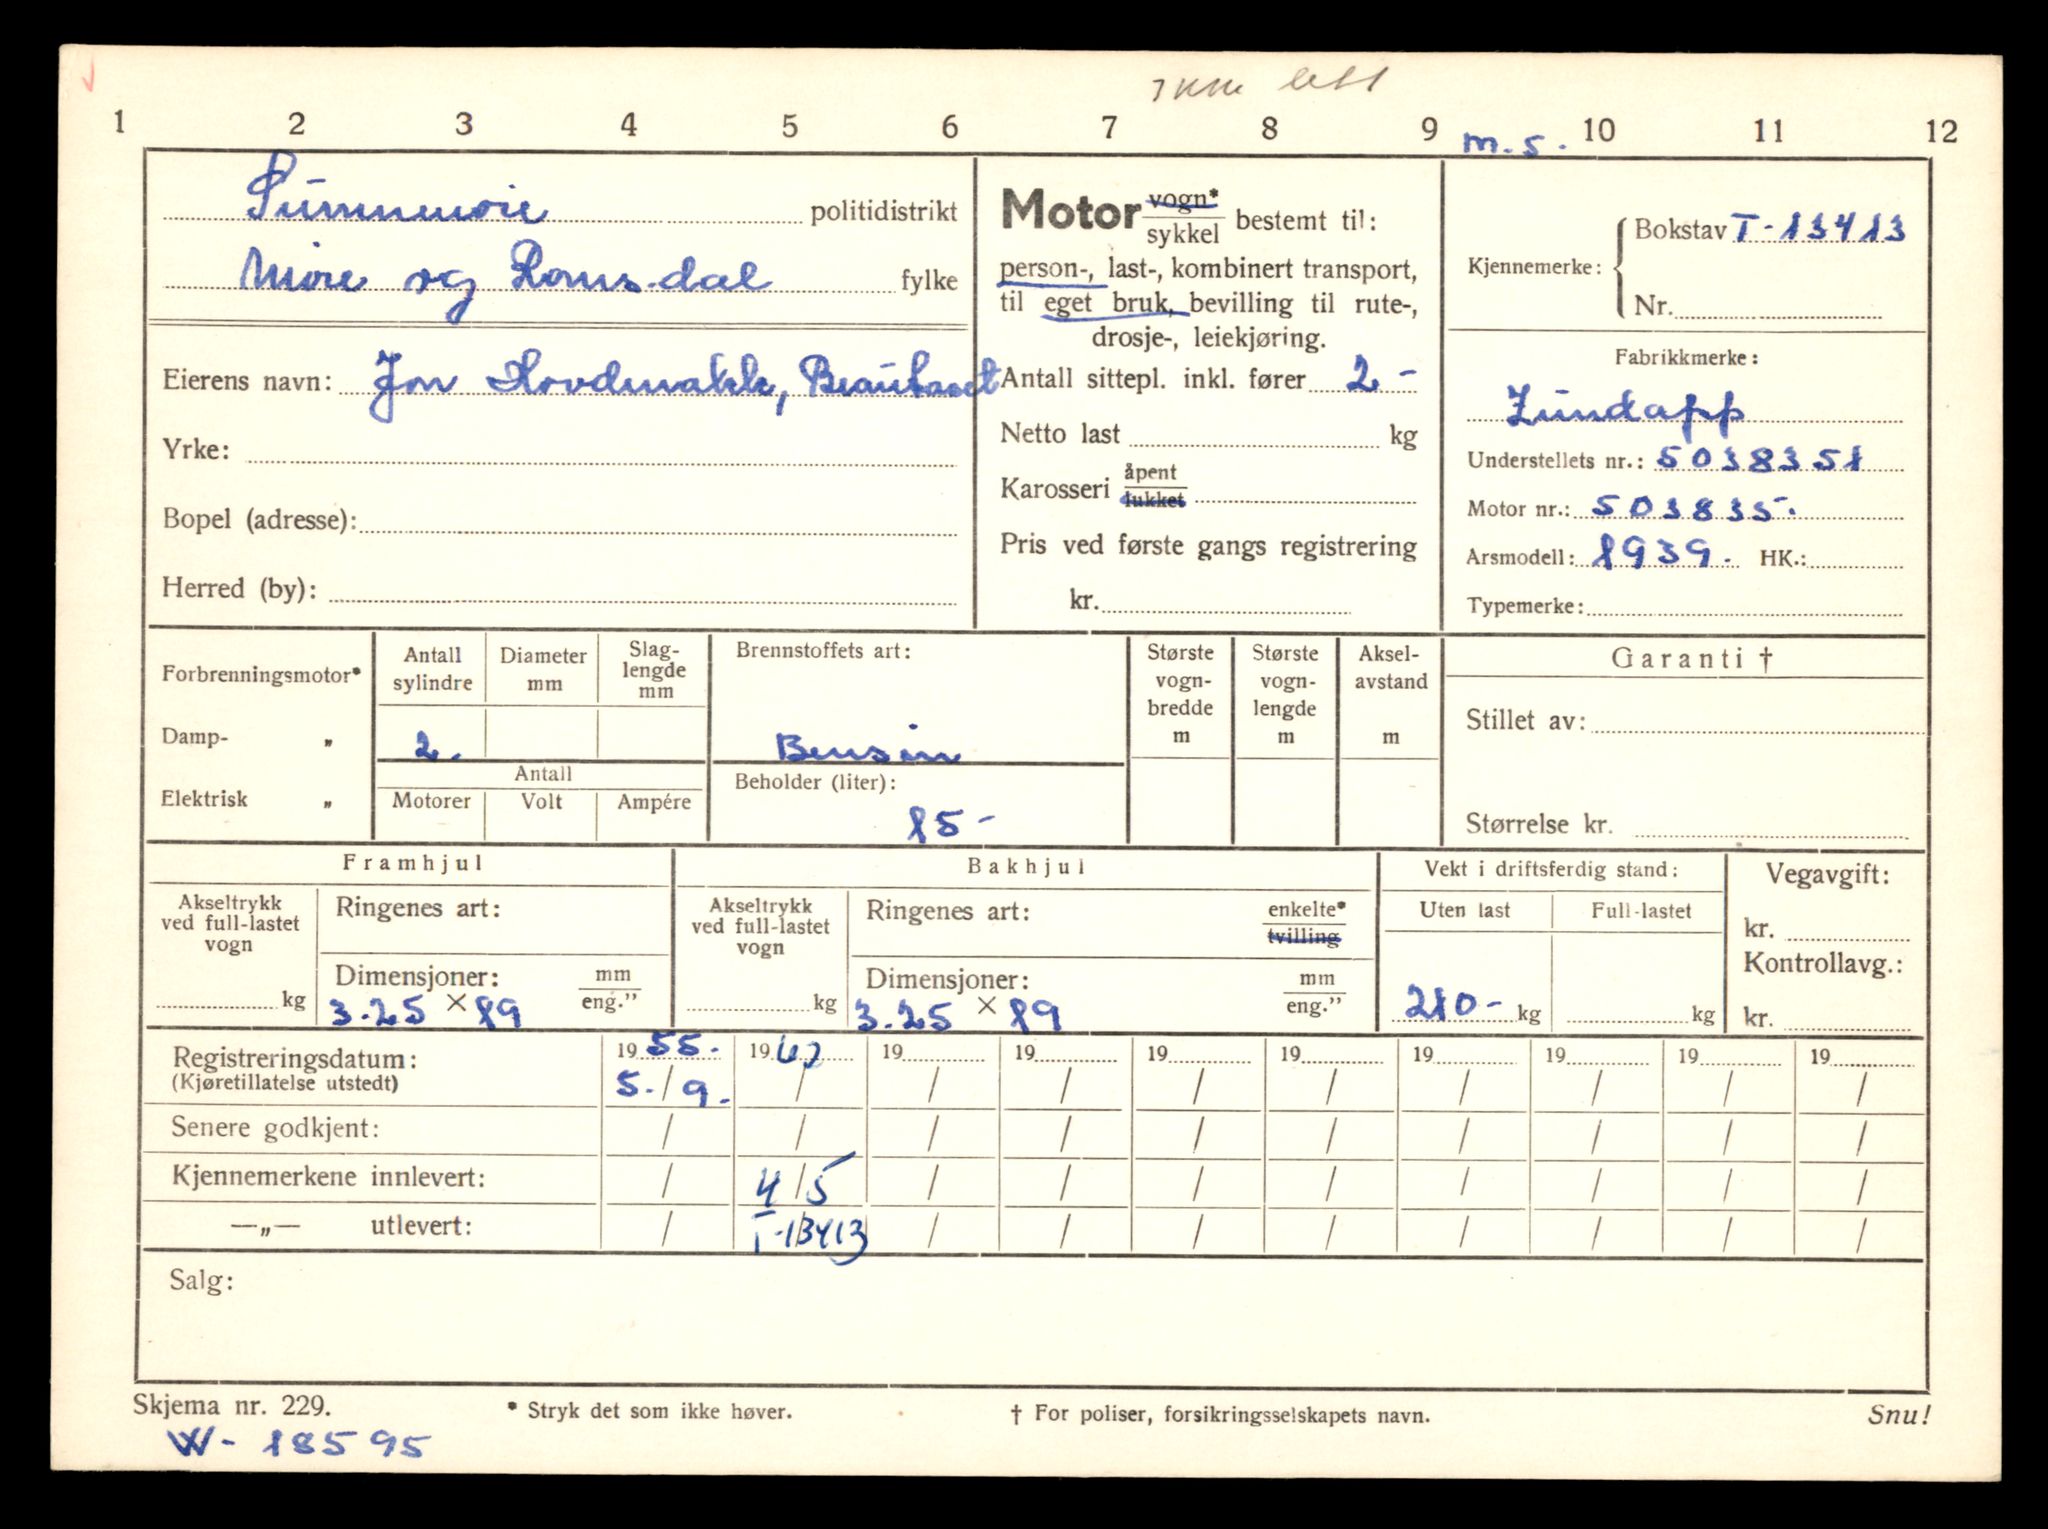 1 2 3 4 5 6 7 8 9 10 11 12
m.s.
Sunnmøre politidistrikt
Møre og Romsdal fylke
Eierens navn: Jon
Yrke:
Bopel (adresse):
Herred (by):
Motor vogn* / sykkel bestemt til:
person-, last-, kombinert transport,
til eget bruk, bevilling til rute-,
drosje-, leiekjøring.
Antall sittepl. inkl. fører 2-
Netto last kg
Karosseri åpent / lukket
Pris ved første gangs registrering
kr.
Kjennemerke: Bokstav T-13413
Nr.
Fabrikkmerke:
Zündapp
Understellets nr.: 5038351
Motor nr.: 503835.
Arsmodell: 1939. HK.:
Typemerke:
Forbrenningsmotor*
Damp- „
Elektrisk „
Antall sylindre
2.
Diameter mm
Slag-
lengde
mm
Antall
Motorer Volt Ampére
Brennstoffets art:
Bensin
Beholder (liter):
15-
Største
vogn-
bredde
m
Største
vogn-
lengde
m
Aksel-
avstand
m
Garanti †
Stillet av:
Størrelse kr.
Framhjul
Akseltrykk
ved full-lastet
vogn
kg
Ringenes art:
Dimensjoner: mm / eng."
3.25 × 19
Bakhjul
Akseltrykk
ved full-lastet
vogn
kg
Ringenes art: enkelte* / tvilling
Dimensjoner: mm / eng."
3.25 × 19
Vekt i driftsferdig stand:
Uten last Full-lastet
210- kg kg
Vegavgift:
kr.
Kontrollavg.:
kr.
Registreringsdatum: 1955. 1960 19 19 19 19 19 19 19 19
(Kjøretillatelse utstedt) 5./9. / / / / / / / / /
Senere godkjent: / / / / / / / / / /
Kjennemerkene innlevert: / 4/5 / / / / / / / /
—„— utlevert: / T-13413 / / / / / / / /
Salg:
Skjema nr. 229. * Stryk det som ikke høver. † For poliser, forsikringsselskapets navn. Snu!
W- 18595